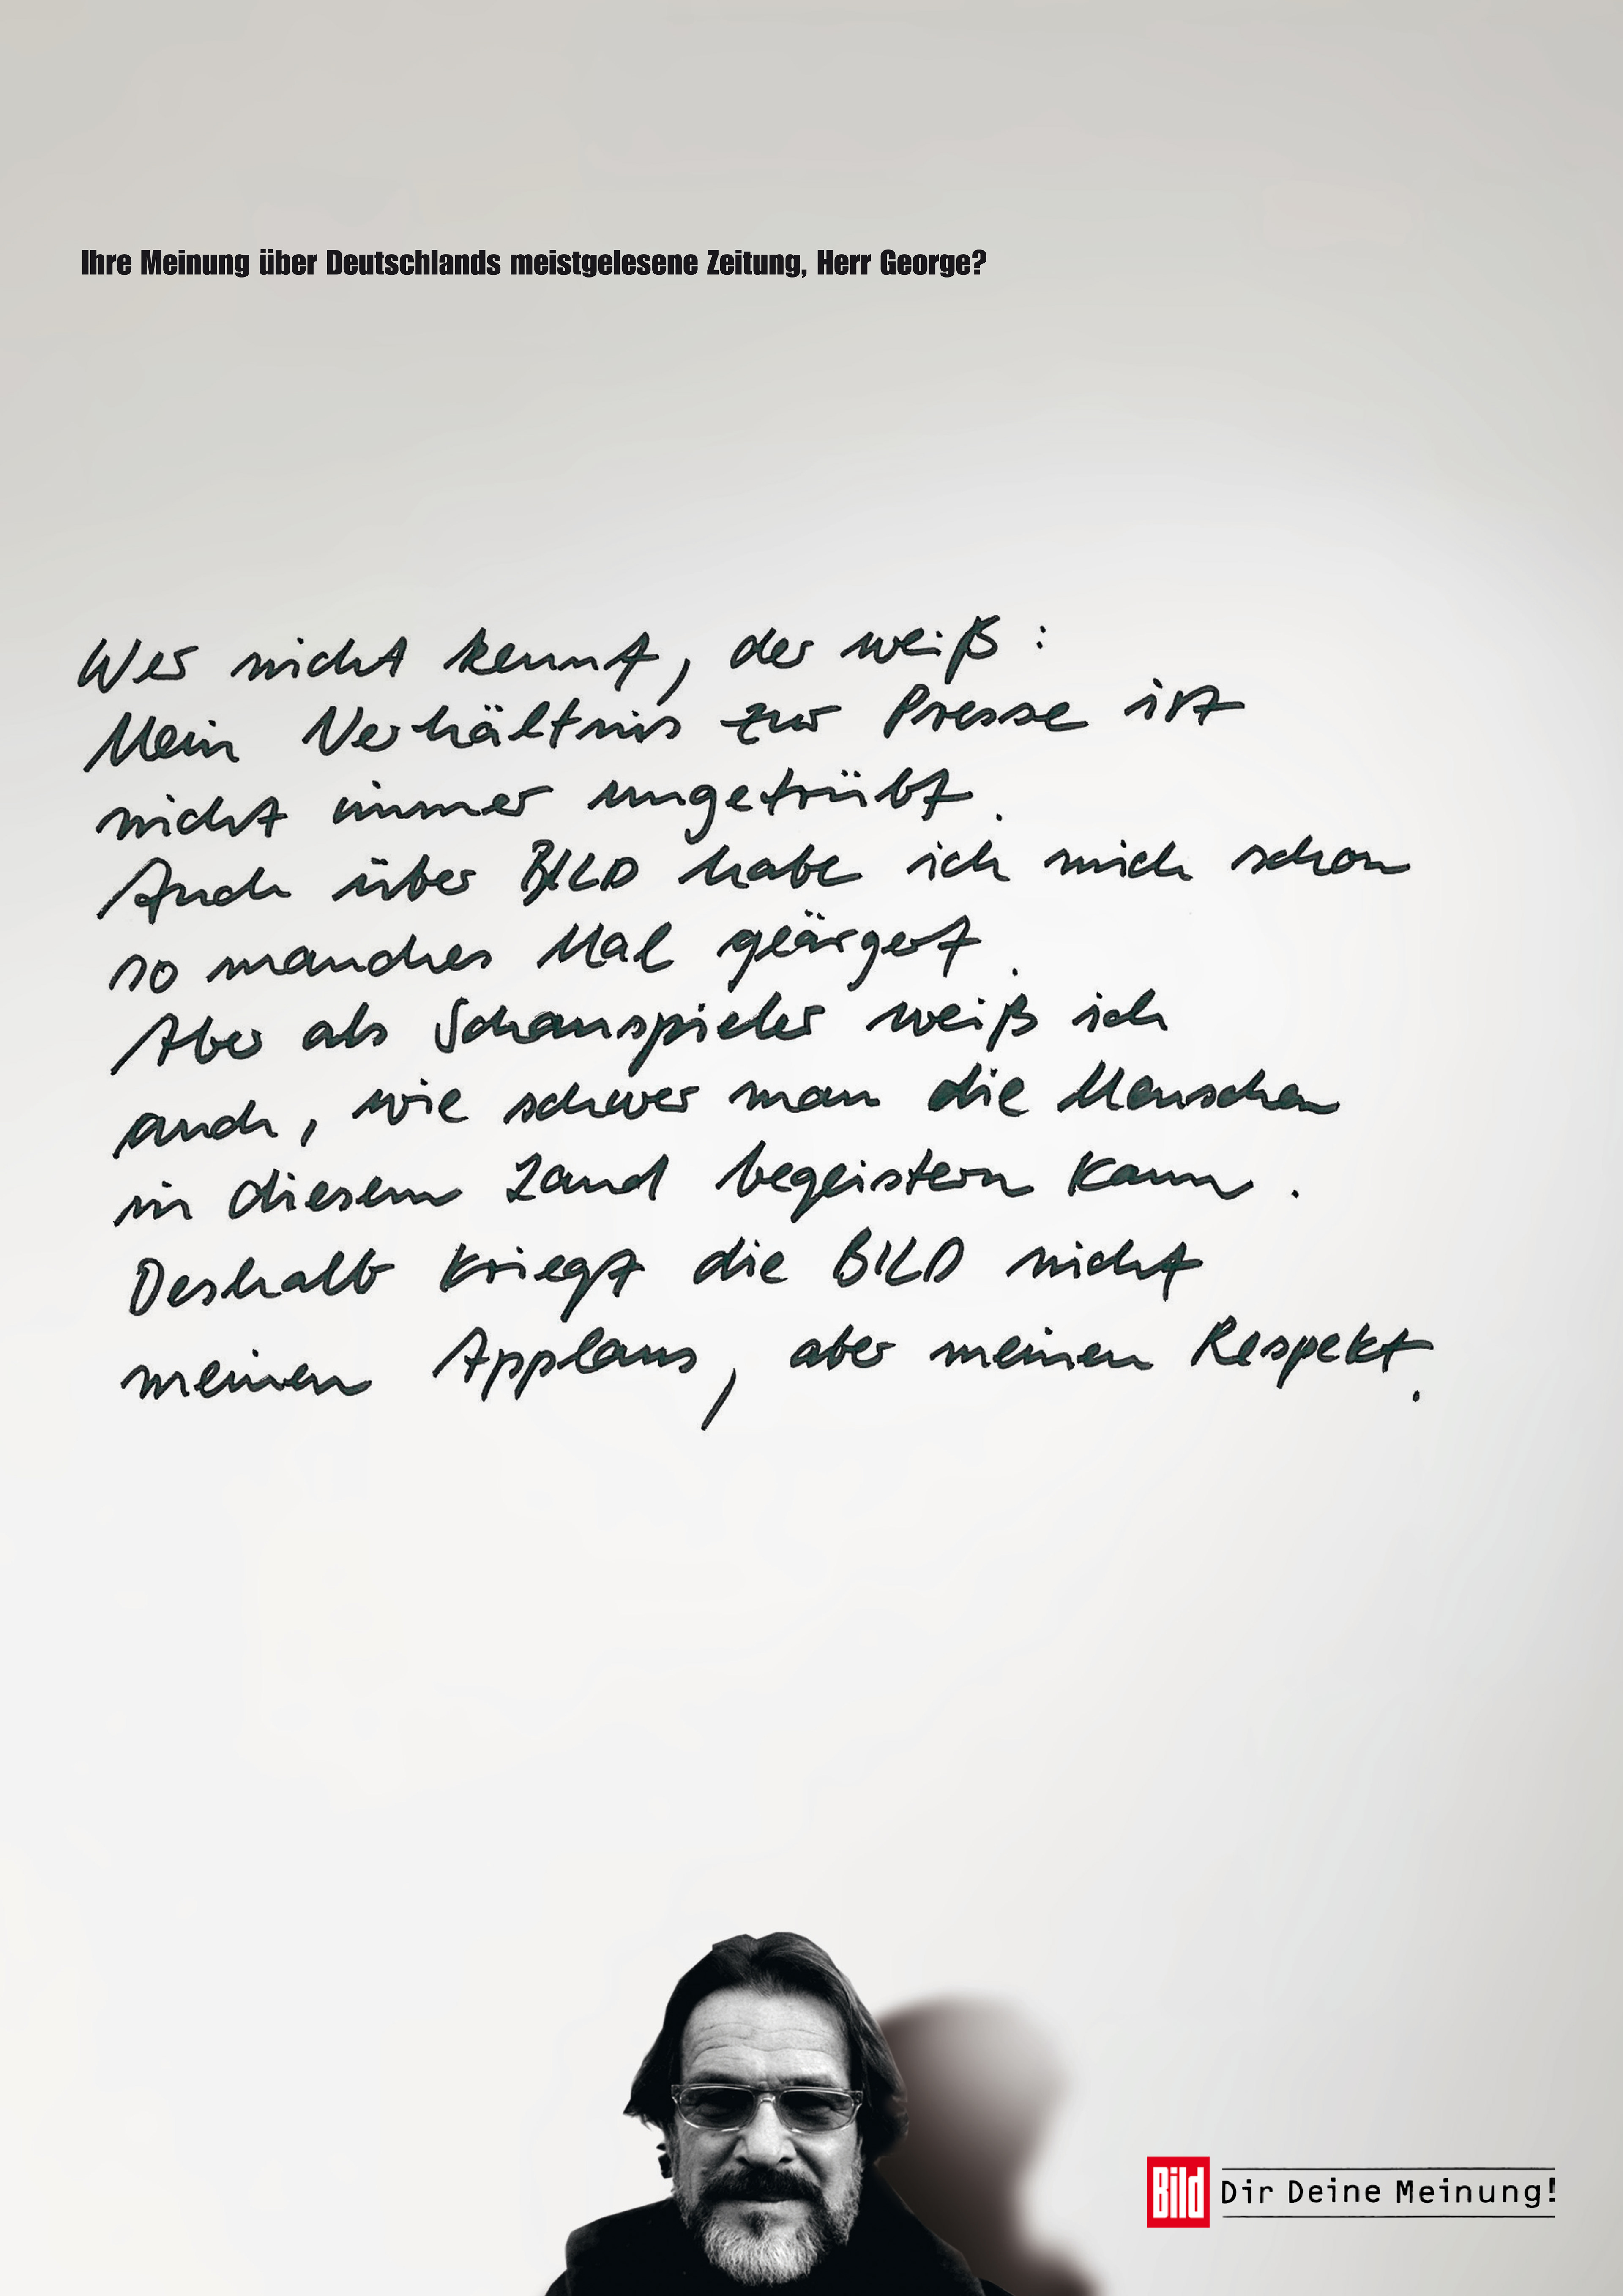 Ihre Meinung über Deutschlands meistgelesene Zeitung, Herr George?
Wer nicht kennt, der weiß:
Mein Verhältnis zur Presse ist
nicht immer ungetrübt.
Auch über BILD habe ich mich schon
so manches Mal geärgert.
Aber als Schauspieler weiß ich
auch, wie schwer man die Menschen
in diesem Land begeistern kann.
Deshalb kriegt die BILD nicht
meinen Applaus, aber meinen Respekt.
Bild Dir Deine Meinung!